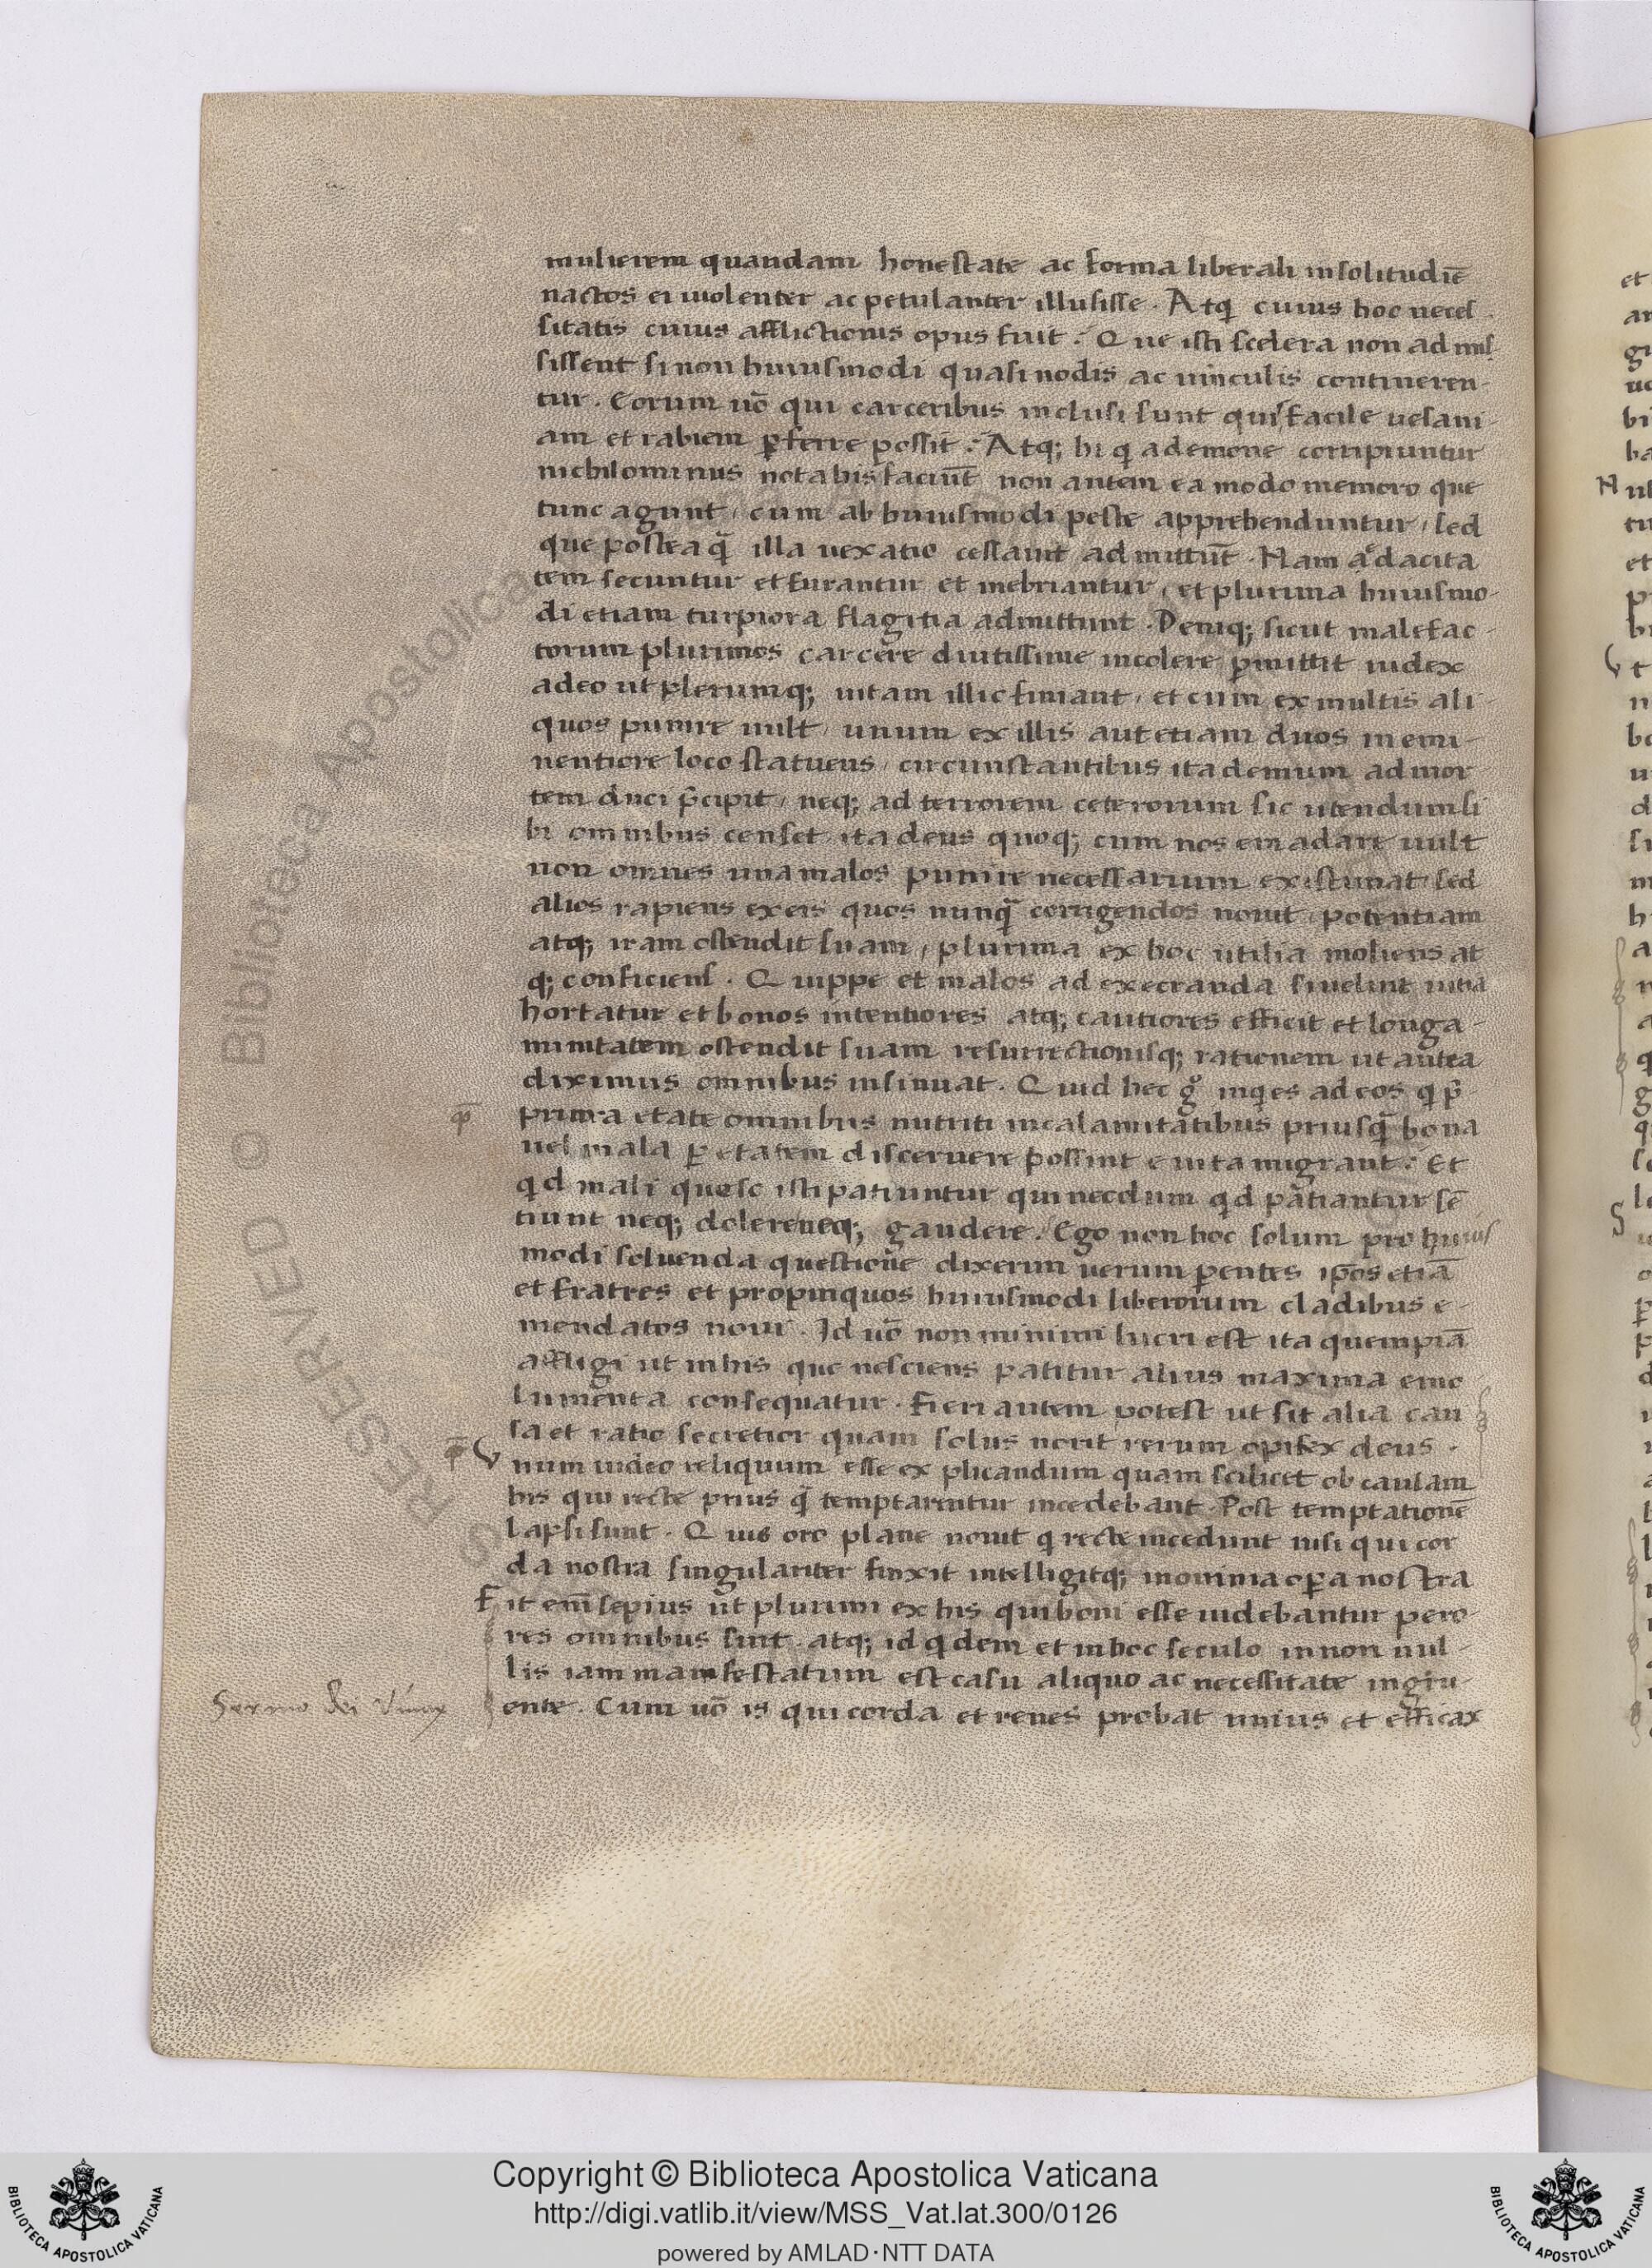 mulierem quandam honestate ac forma liberali in solitudīe
nactos ei uiolenter ac petulanter illusisse. Atq; cuius hoc neces-
sitatis cuius afflictionis opus fuit? Que isti scelera non admis
sissent si non huiusmodi quasi nodis ac uinculis contineren-
tur. Eorum uō qui carceribus inclusi sunt quis facile uesani-
am et rabiem ꝑferre possit? Atq; hi q̇ a demone corripiuntur
nichilominus nota bis faciūt non autem ea modo memoro que
tunc agunt, cum ab huiusmodi peste apprehenduntur, sed
que postea q̄ illa uexatio cessauit admittūt. Nam a edacita
tem secuntur et furantur et inebriantur, et plurima huiusmo-
di etiam turpiora flagitia admittunt. Deniq; sicut malefac-
torum plurimos carcere diutissime incolere ꝑmittit iudex
adeo ut plerumq; uitam illic finiant, et cum ex multis ali-
quos punire uult, unum ex illis aut etiam duos in emi-
nentiore loco statuens, circunstantibus ita demum ad mor-
tem duci p̄cipit, neq; ad terrorem ceterorum sic utendum si
bi omnibus censet, ita deus quoq; cum nos emadare uult
non omnes una malos punire necessarium existimat, sed
alios rapiens ex eis quos nunq̄ corrigendos nouit, potentiam
atq; iram ostendit suam, plurima ex hoc utilia moliens at
q; conficiens. Quippe et malos ad execranda si uelint uitia
hortatur et bonos intentiores atq; cautiores efficit et longa-
nimitatem ostendit suam resurrectionisq; rationem ut antea
diximus omnibus insinuat. Quid hec gͦ inq̇es ad eos q̇ p̄
prima etate omnibus nutriti in calamitatibus priusq̄ bona
uel mala ꝑ etatem discernere possint e uita migrant? Et
qd mali queso isti patiuntur qui necdum qd patiantur sē
tiunt neq; dolere neq; gaudere. Ego non hoc solum pro huius
modi soluenda questione dixerim uerum ꝑentes ip̄os etiā
et fratres et propinquos huiusmodi liberorum cladibus e-
mendatos noui. Id uō non minimi lucri est ita quempiā
affligi ut in his que nesciens patitur alius maxima emo
lumenta consequatur. Fieri autem potest ut sit alia cau
sa et ratio secretior quam solus norit rerum opifex deus.
Vnum uideo reliquum esse explicandum quam scilicet ob causam
his qui recte prius q̄ temptarentur incedebant. Post temptationē
lapsi sunt. Quis oro plane nouit q̇ recte incedunt nisi qui cor
da nostra singulariter finxit intelligitq; in omnia oꝑa nostra
Fit enī sepius ut plurimi ex his qui boni esse uidebantur peio-
res omnibus sint. atq; id q̇dem et in hoc seculo in non nul-
lis iam manifestatum est casu aliquo ac necessitate ingru-
ente. Cum uō is qui corda et renes probat uiuus et efficax
Sermo dei viuus
Copyright © Biblioteca Apostolica Vaticana
http://digi.vatlib.it/view/MSS_Vat.lat.300/0126
powered by AMLAD·NTT DATA
BIBLIOTECA APOSTOLICA VATICANA
BIBLIOTECA APOSTOLICA VATICANA